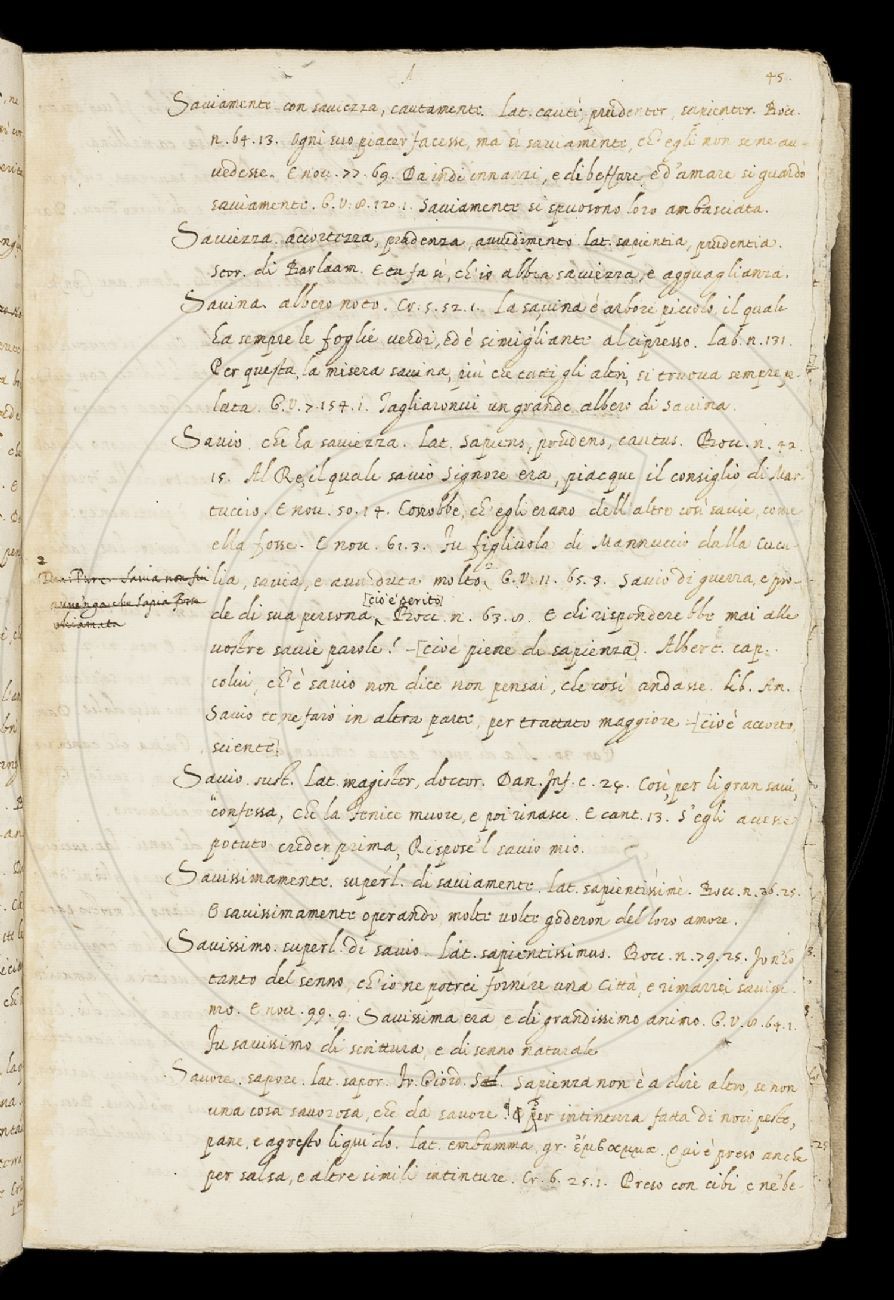 A
45.
Saviamente con saviezza, cautamente. Lat. cautè, prudenter, sapienter. Bocc.
n. 64. 13. Ogni suo piacer facesse, ma sì saviamente, ch'egli non se ne av-
vedesse. E nov. 77. 69. Da indi innanzi, e di beffare, e d'amare si guardò
saviamente. G. V. 8. 120. 1. Saviamente si spuosono loro ambasciata.
Saviezza. accortezza, prudenza, avvidimento lat. sapientia, prudentia.
Stor. di Barlaam. E tu fa sì, ch'io abbia saviezza, e agguaglianza.
Savina. albero noto. Cr. 5. 52. 1. La savina è arbore piccolo, il quale
ha sempre le foglie verdi, ed è simigliante al cipresso. Lab. n. 131.
Per questa, la misera savina, più che tutti gli altri, si truova sempre pe-
lata. G. V. 7. 154. 1. Tagliaronvi un grande albero di Savina.
Savio. che ha saviezza. Lat. Sapiens, prudens, cautus. Bocc. n. 42.
15. Al Re, il quale savio Signore era, piacque il consiglio di Mar-
tuccio. E nov. 50. 14. Conobbe, ch'egli erano dell'altre così savie, come
ella fosse. E nov. 61. 3. Fu figliuola di Mannuccio dalla Cucu-
lia, savia, e avveduta molto 2 G. V. 11. 65. 3. Savio di guerra, e pro-
2
Dan. Purc. Savia non fui
avvenga che Sapia fosse
chiamata
[cio è perito]
de di sua persona Bocc. n. 63. 8. E chi risponderebbe mai alle
vostre savie parole! [cioè piene di sapienza]. Albert. cap.
colui, ch'è savio non dice non pensai, che così andasse. Lib. An.
Savio te ne farò in altra parte, per trattato maggiore [cioè accorto,
sciente]
Savio. sust. Lat. magister, doctor. Dan. Inf. c. 24. Così, per li gran savi,
confessa, che la Fenice muore, e poi rinasce. E cant. 13. S'egli avesse
potuto creder prima, Rispose 'l savio mio.
Savissimamente. superl. di saviamente. lat. sapientissimè. Bocc. n. 36. 25.
E savissimamente operando, molte volte goderon del loro amore.
Savissimo. superl. di savio. lat. sapientissimus. Bocc. n. 79. 25. Io n'ho
tanto del senno, ch'io ne potrei fornire una Città, e rimarrei savissi-
mo. E nov. 99. 9. Savissima era e di grandissimo animo. G. V. 8. 64. 1.
Fu savissimo di scrittura, e di senno naturale
Savore. sapore. lat. sapor. Fr. Giord. Sal. Sapienza non è a dire altro, se non
una cosa savorosa, che da savore. Per intintura fatta di noci peste,
pane, e agresto liquido. lat. embamma, gr. ἔμβαμμα. Qui è preso anche
per salsa, e altre simili intinture. Cr. 6. 25. 1. Preso con cibi e ne' be-